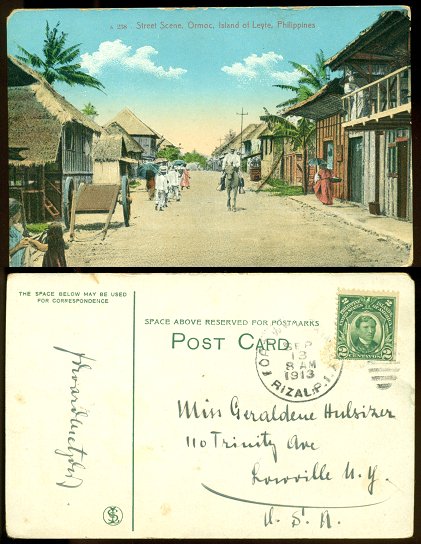 A 258. Street Scene, Ormoc, Island of Leyte, Philippines
THE SPACE BELOW MAY BE USED
FOR CORRESPONDENCE
SPACE ABOVE RESERVED FOR POSTMARKS
POST CARD
SEP
13
8 AM
1913
RIZAL. P.I.
2 2
CENTAVOS
Miss Geraldene Hulsizer
110 Trinity Ave
Lowville N.Y.
U.S.A.